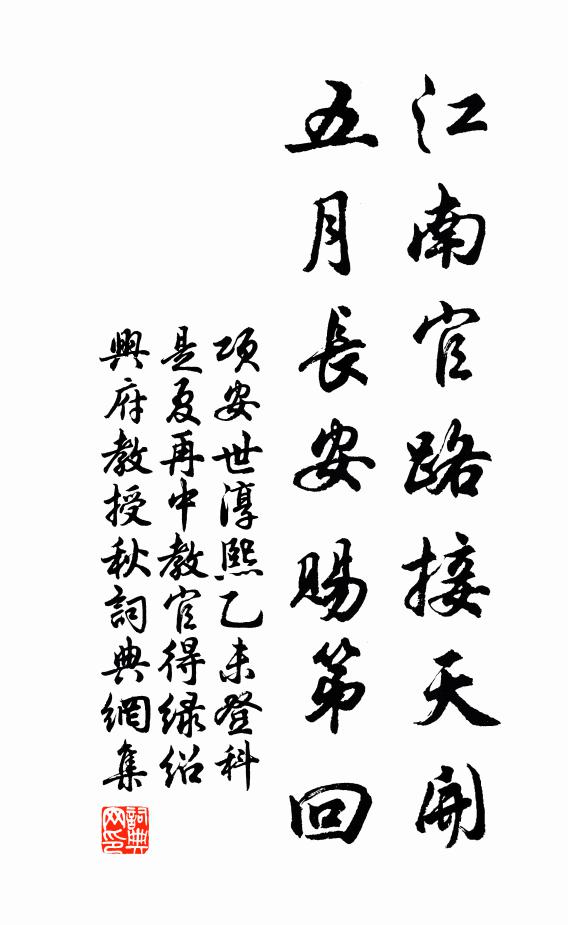 江南官路接天開
五月長安賜第回
項安世淳熙乙未登科
是夏再中教官得綠紹
興府教授秋詞典網集
詞典网印